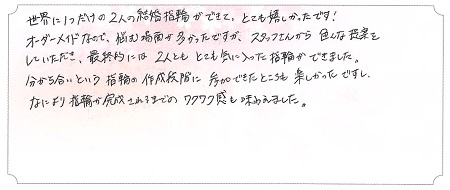 世界に1つだけの2人の結婚指輪ができて、とても嬉しかったです!
オーダーメイドなので、悩む場面が多かったですが、スタッフさんから色んな提案を
していただき、最終的には2人ともとても気に入った指輪ができました。
分かち合いという指輪の作成段階に参加できたところも楽しかったですし、
なにより指輪が完成されるまでのワクワク感も味わえました。